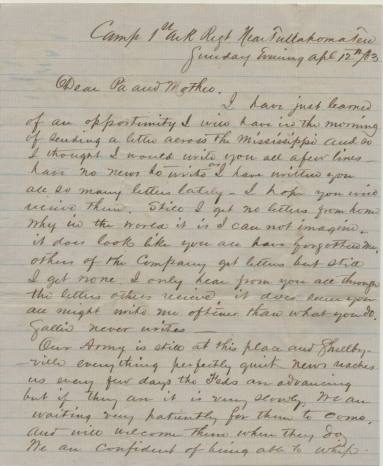 Camp 1st Ark Regt Near Tullahoma Ten
Sunday Evning Apl 12th /63
Dear Pa and Mother.
I have just learned
of an opportinity I will have in the morning
of sending a letter across the Mississippi and so
I thought I would write you all a few lines -
have no news to write as I have written you
all so many letters lately - I hope you will
receive them. Still I get no letters from home
why in the world it is I can not imagine.
it does look like you all have forgotten me.
others of the Company get letters but still
I get none. I only hear from you all through
the letters others receive. it does seem you
all might write me oftener than what you do.
Gallie never writes -
Our Army is still at this place and Shelby-
-ville everything perfectly quit. news reaches
us every few days the Feds are advancing
but if they are it is very slowly. We are
waiting very patiently for them to come.
and will welcome them when they do,
We are confident of being able to whip